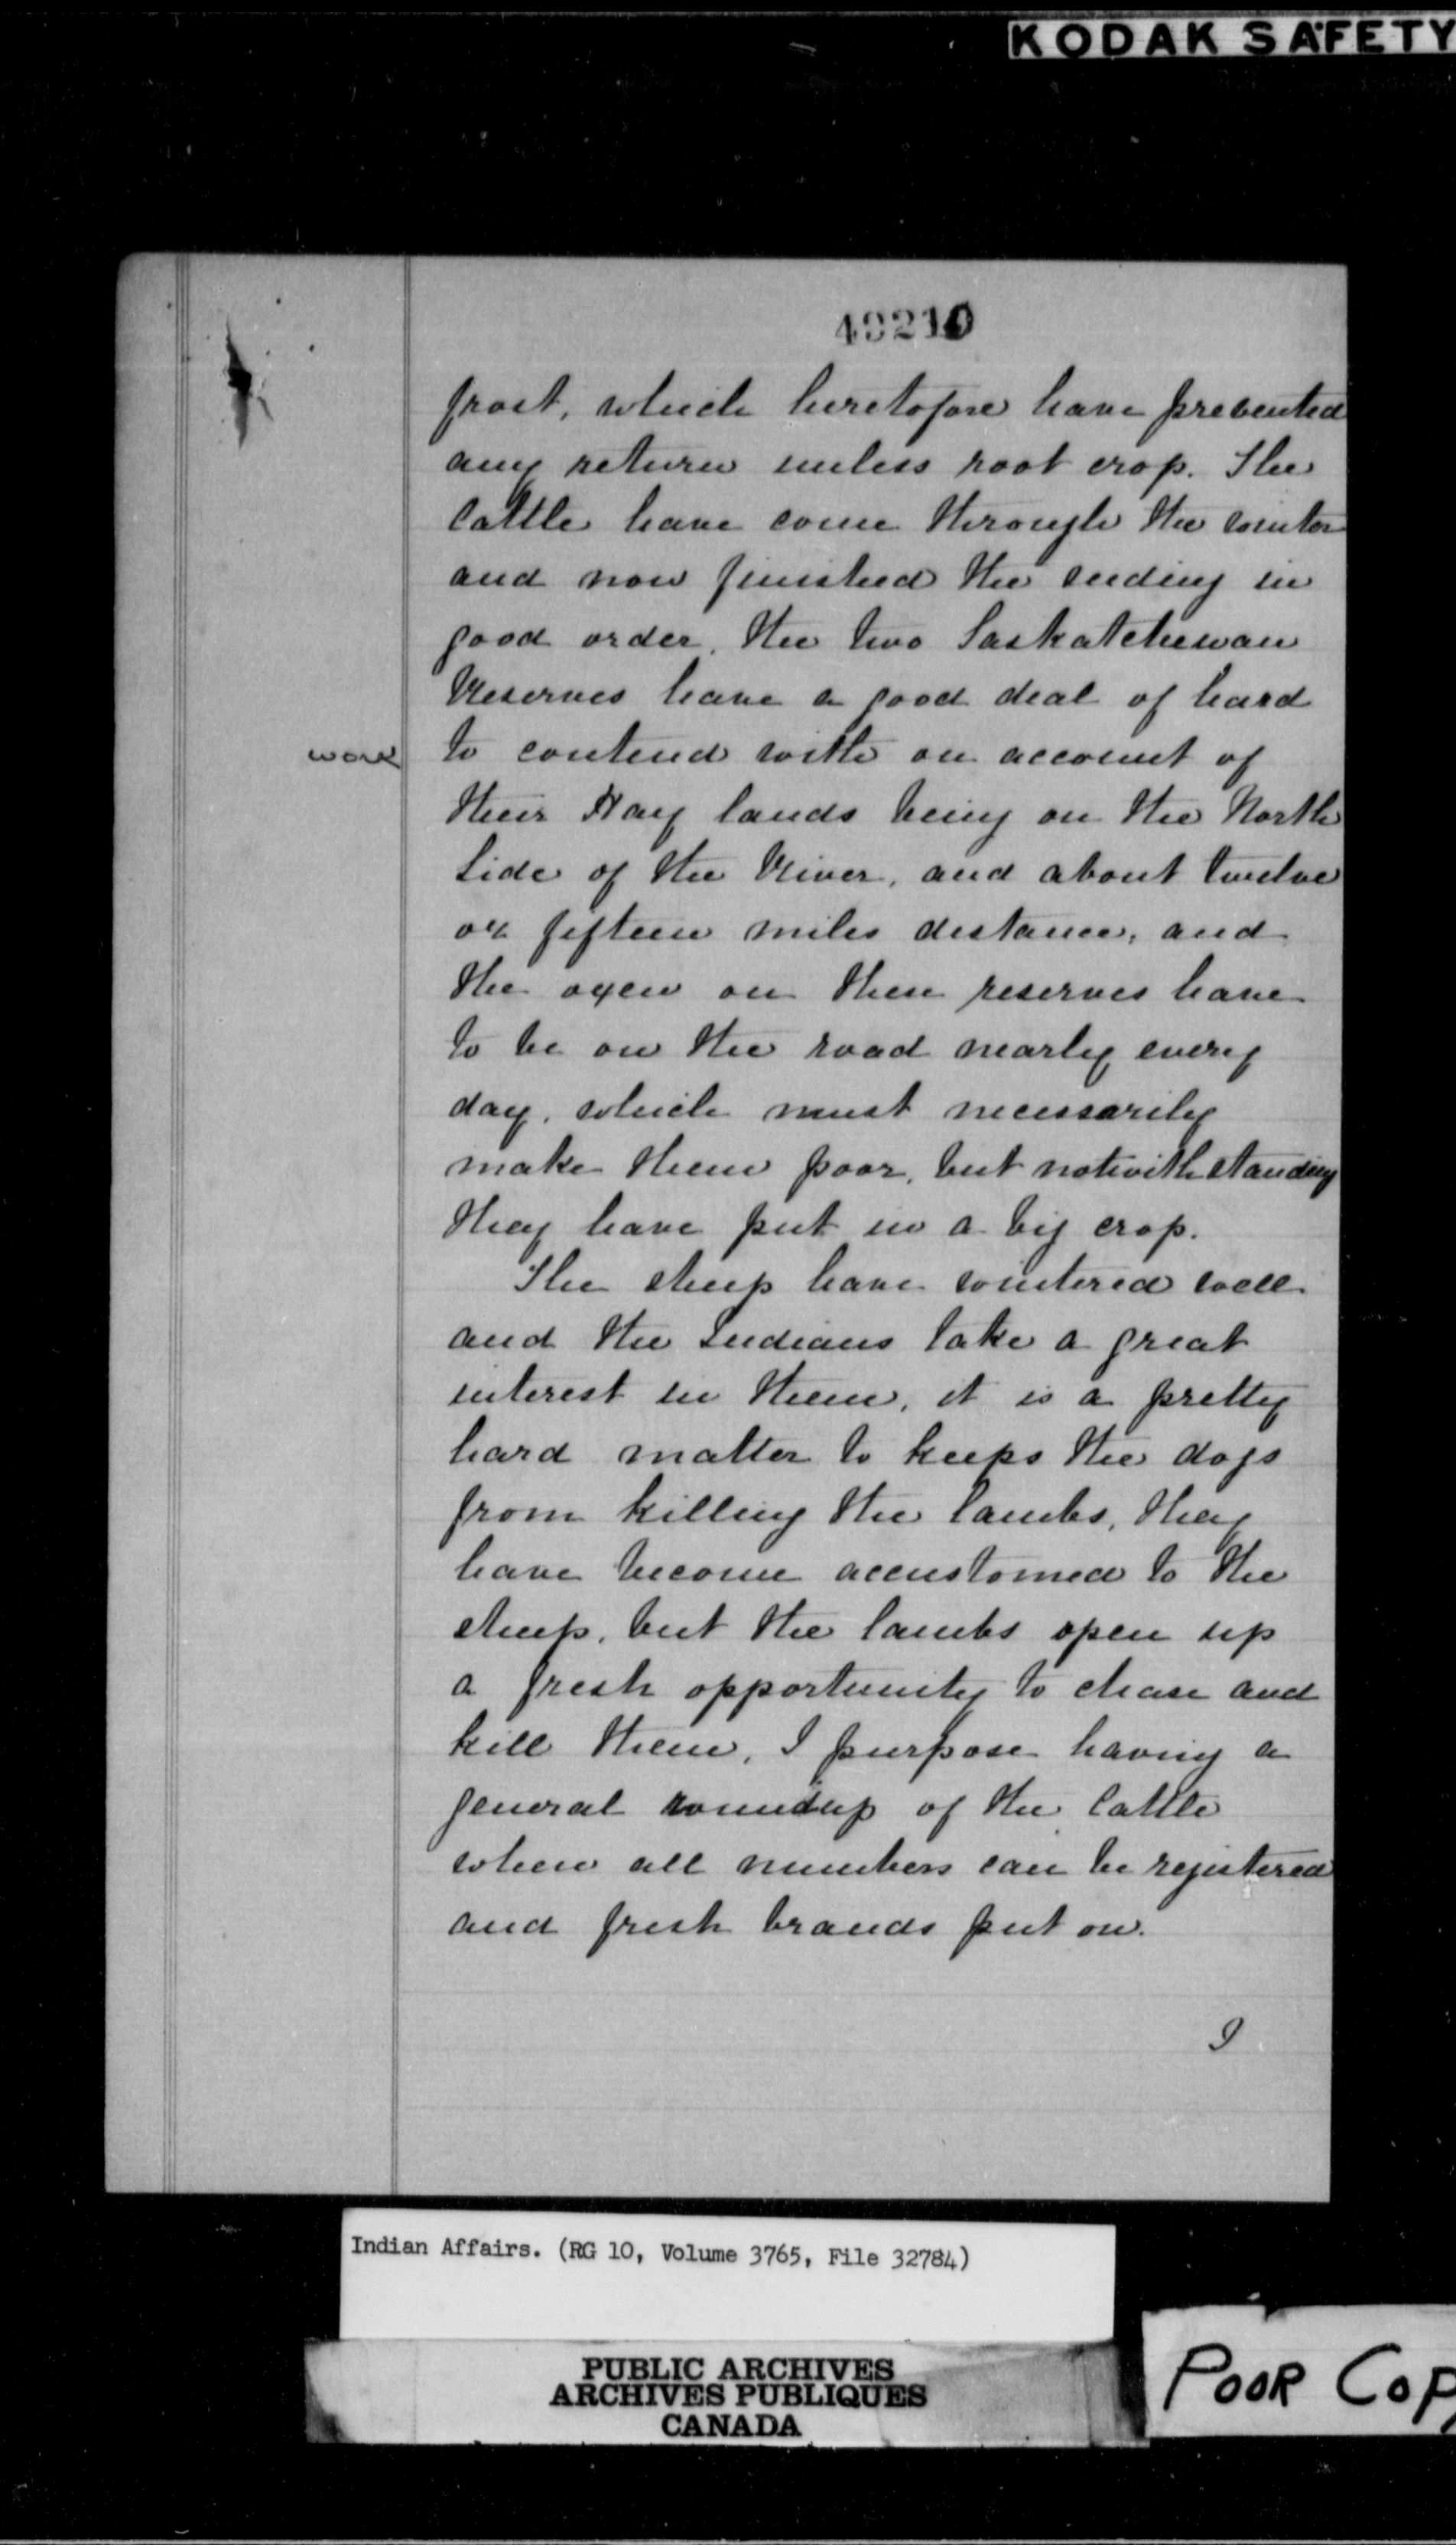 KODAK SAFETY
49210
frost, which heretofore have prevented
any return unless root crop. The
Cattle have come through the winter
and now finished the seeding in
good order, the two Saskatchewan
Reserves have a good deal of hard
work to contend with on account of
their Hay lands being on the North
Side of the River, and about twelve
or fifteen miles distance, and
the oxen on these reserves have
to be on the road nearly every
day, which must necessarily
make them poor, but notwithstanding
they have put in a big crop.
The sheep have wintered well
and the Indians take a great
interest in them, it is a pretty
hard matter to keeps the dogs
from killing the lambs, they
have become accustomed to the
sheep, but the lambs open up
a fresh opportunity to chase and
kill them, I purpose having a
general roundup of the Cattle
when all numbers can be registered
and fresh brands put on.
I
Indian Affairs. (RG 10, Volume 3765, File 32784)
PUBLIC ARCHIVES
ARCHIVES PUBLIQUES
CANADA
POOR COP